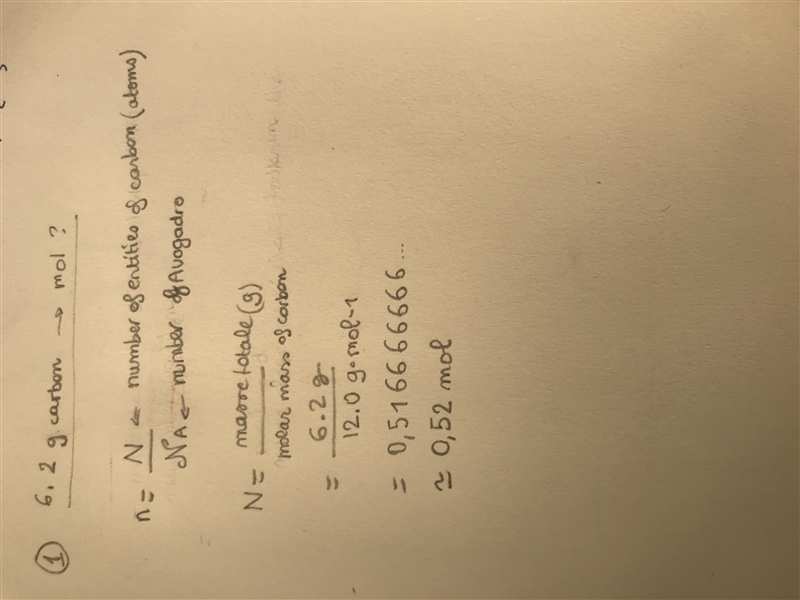 ① 6.2 g carbon → mol ?
n = N ← number of entities of carbon (atoms)
NA ← number of Avogadro
N = masse totale (g)
molar mass of carbon
= 6.2 g
12.0 g·mol-1
= 0,5166666666...
≃ 0,52 mol